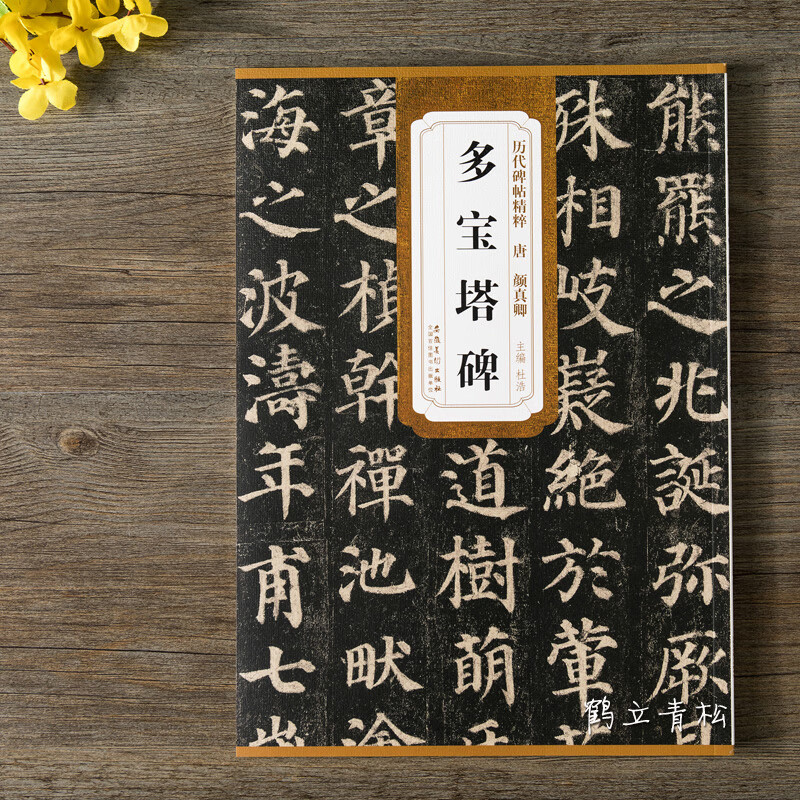 多宝塔碑
历代碑帖精粹 唐 颜真卿
主编 杜浩
安徽美术出版社
全国百佳图书出版单位
熊羆之兆誕弥厥
殊相岐嶷絕於葷
道樹萌
章之楨幹禪池畎澮
海之波濤年甫七歲
鹤立青松